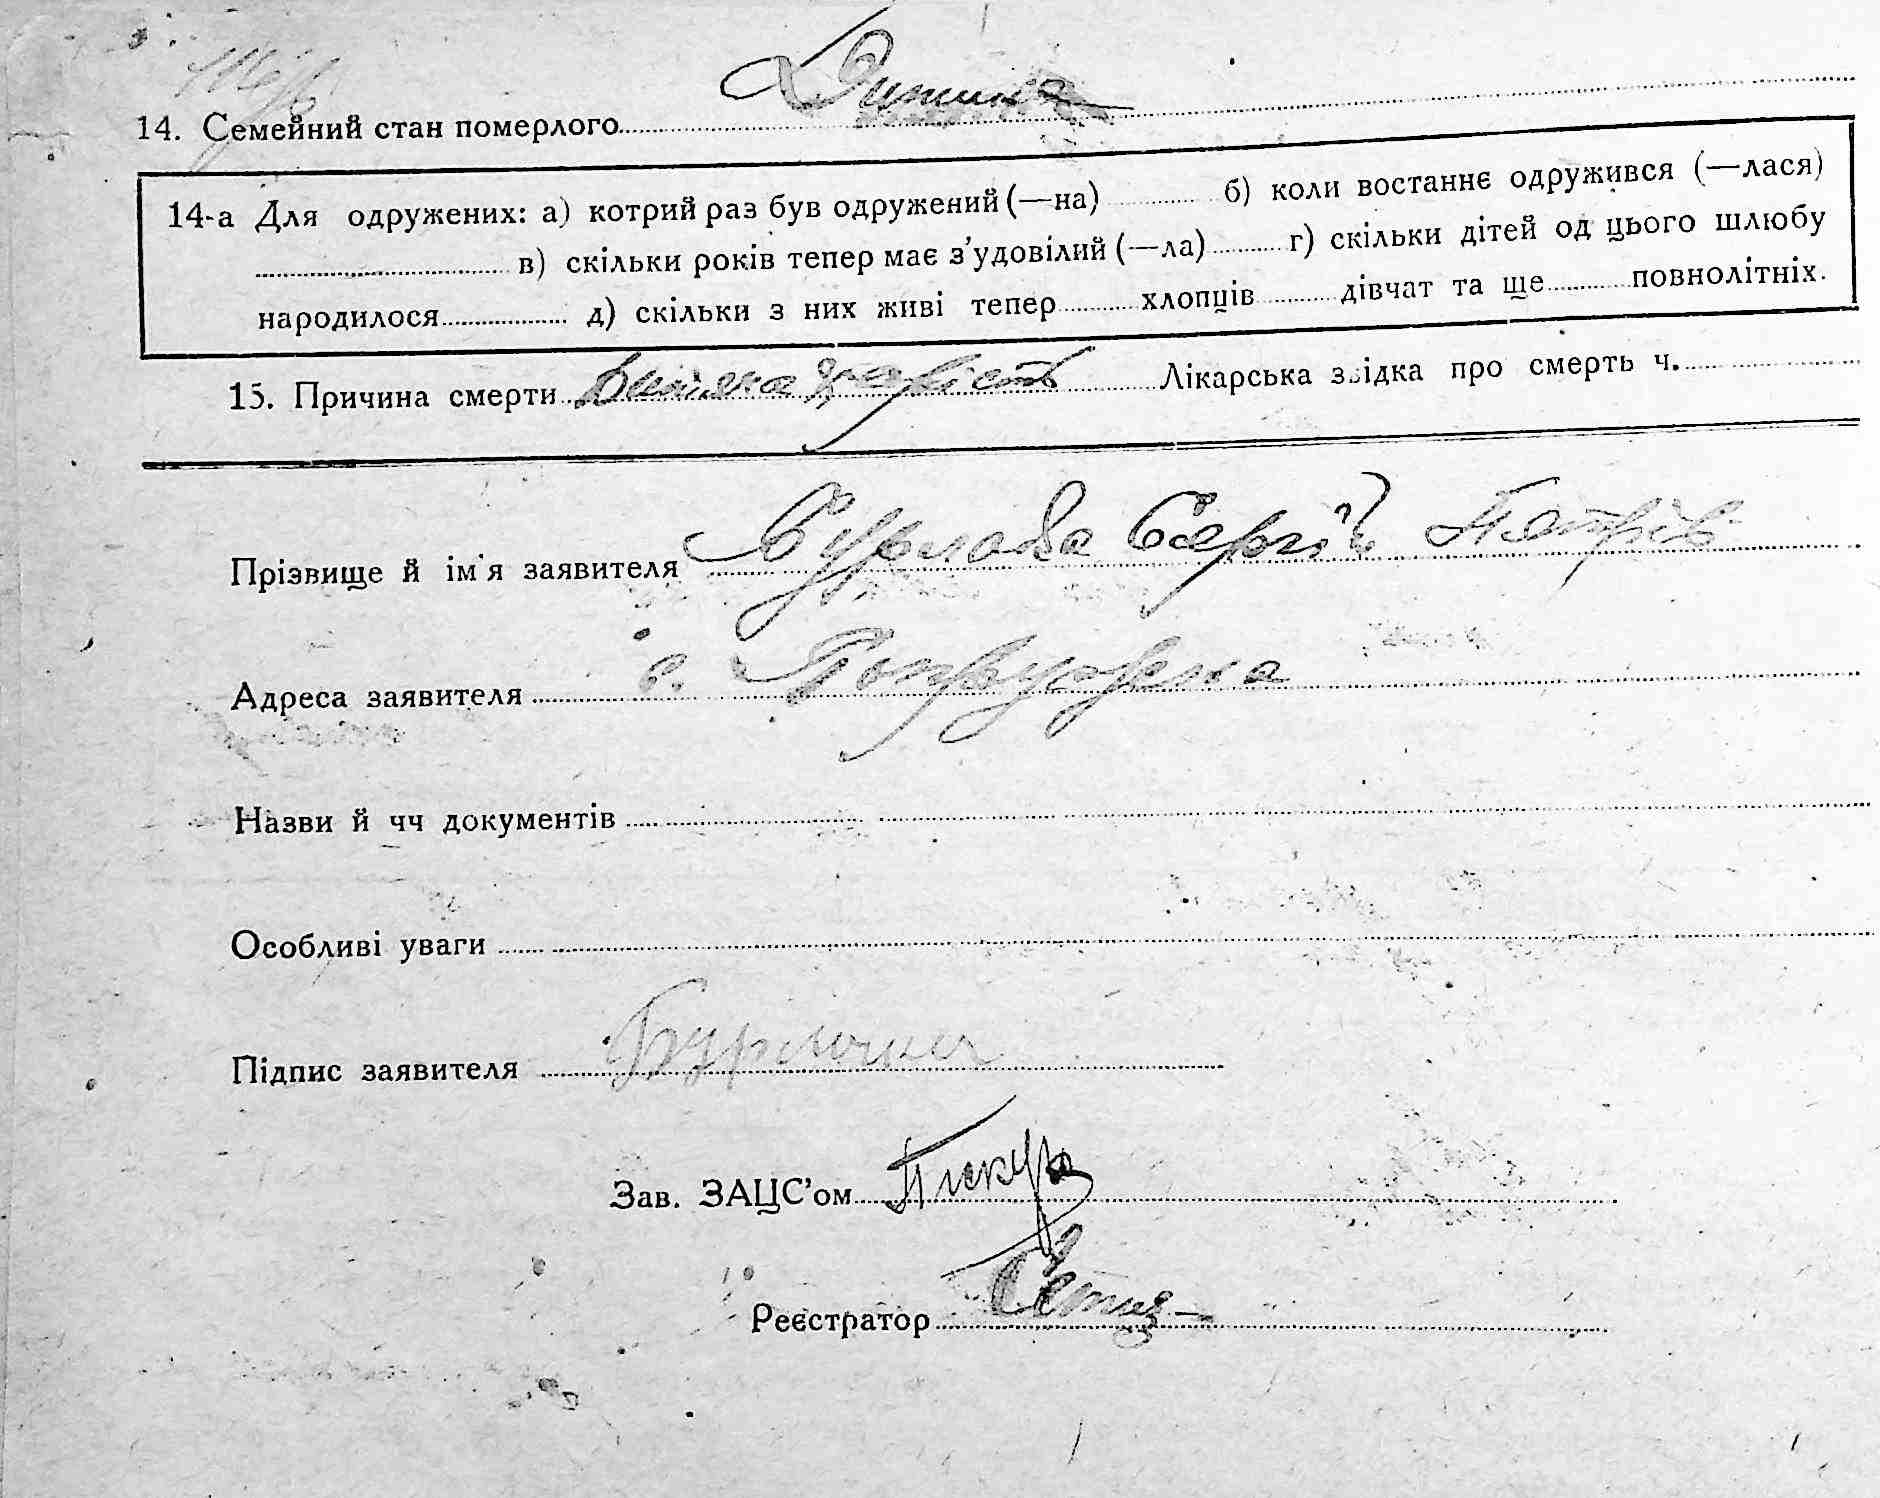 14. Семейний стан померлого Дитина
14-а Для одружених: а) котрий раз був одружений (—на) б) коли востаннє одружився (—лася)
в) скільки років тепер має з’удовілий (—ла) г) скільки дітей од цього шлюбу
народилося д) скільки з них живі тепер хлопців дівчат та ще повнолітніх.
15. Причина смерти Лікарська звідка про смерть ч.
Прізвище й ім'я заявителя Сергій Петрів
Адреса заявителя с.
Назви й чч документів
Особливі уваги
Підпис заявителя
Зав. ЗАЦС’ом
Реєстратор